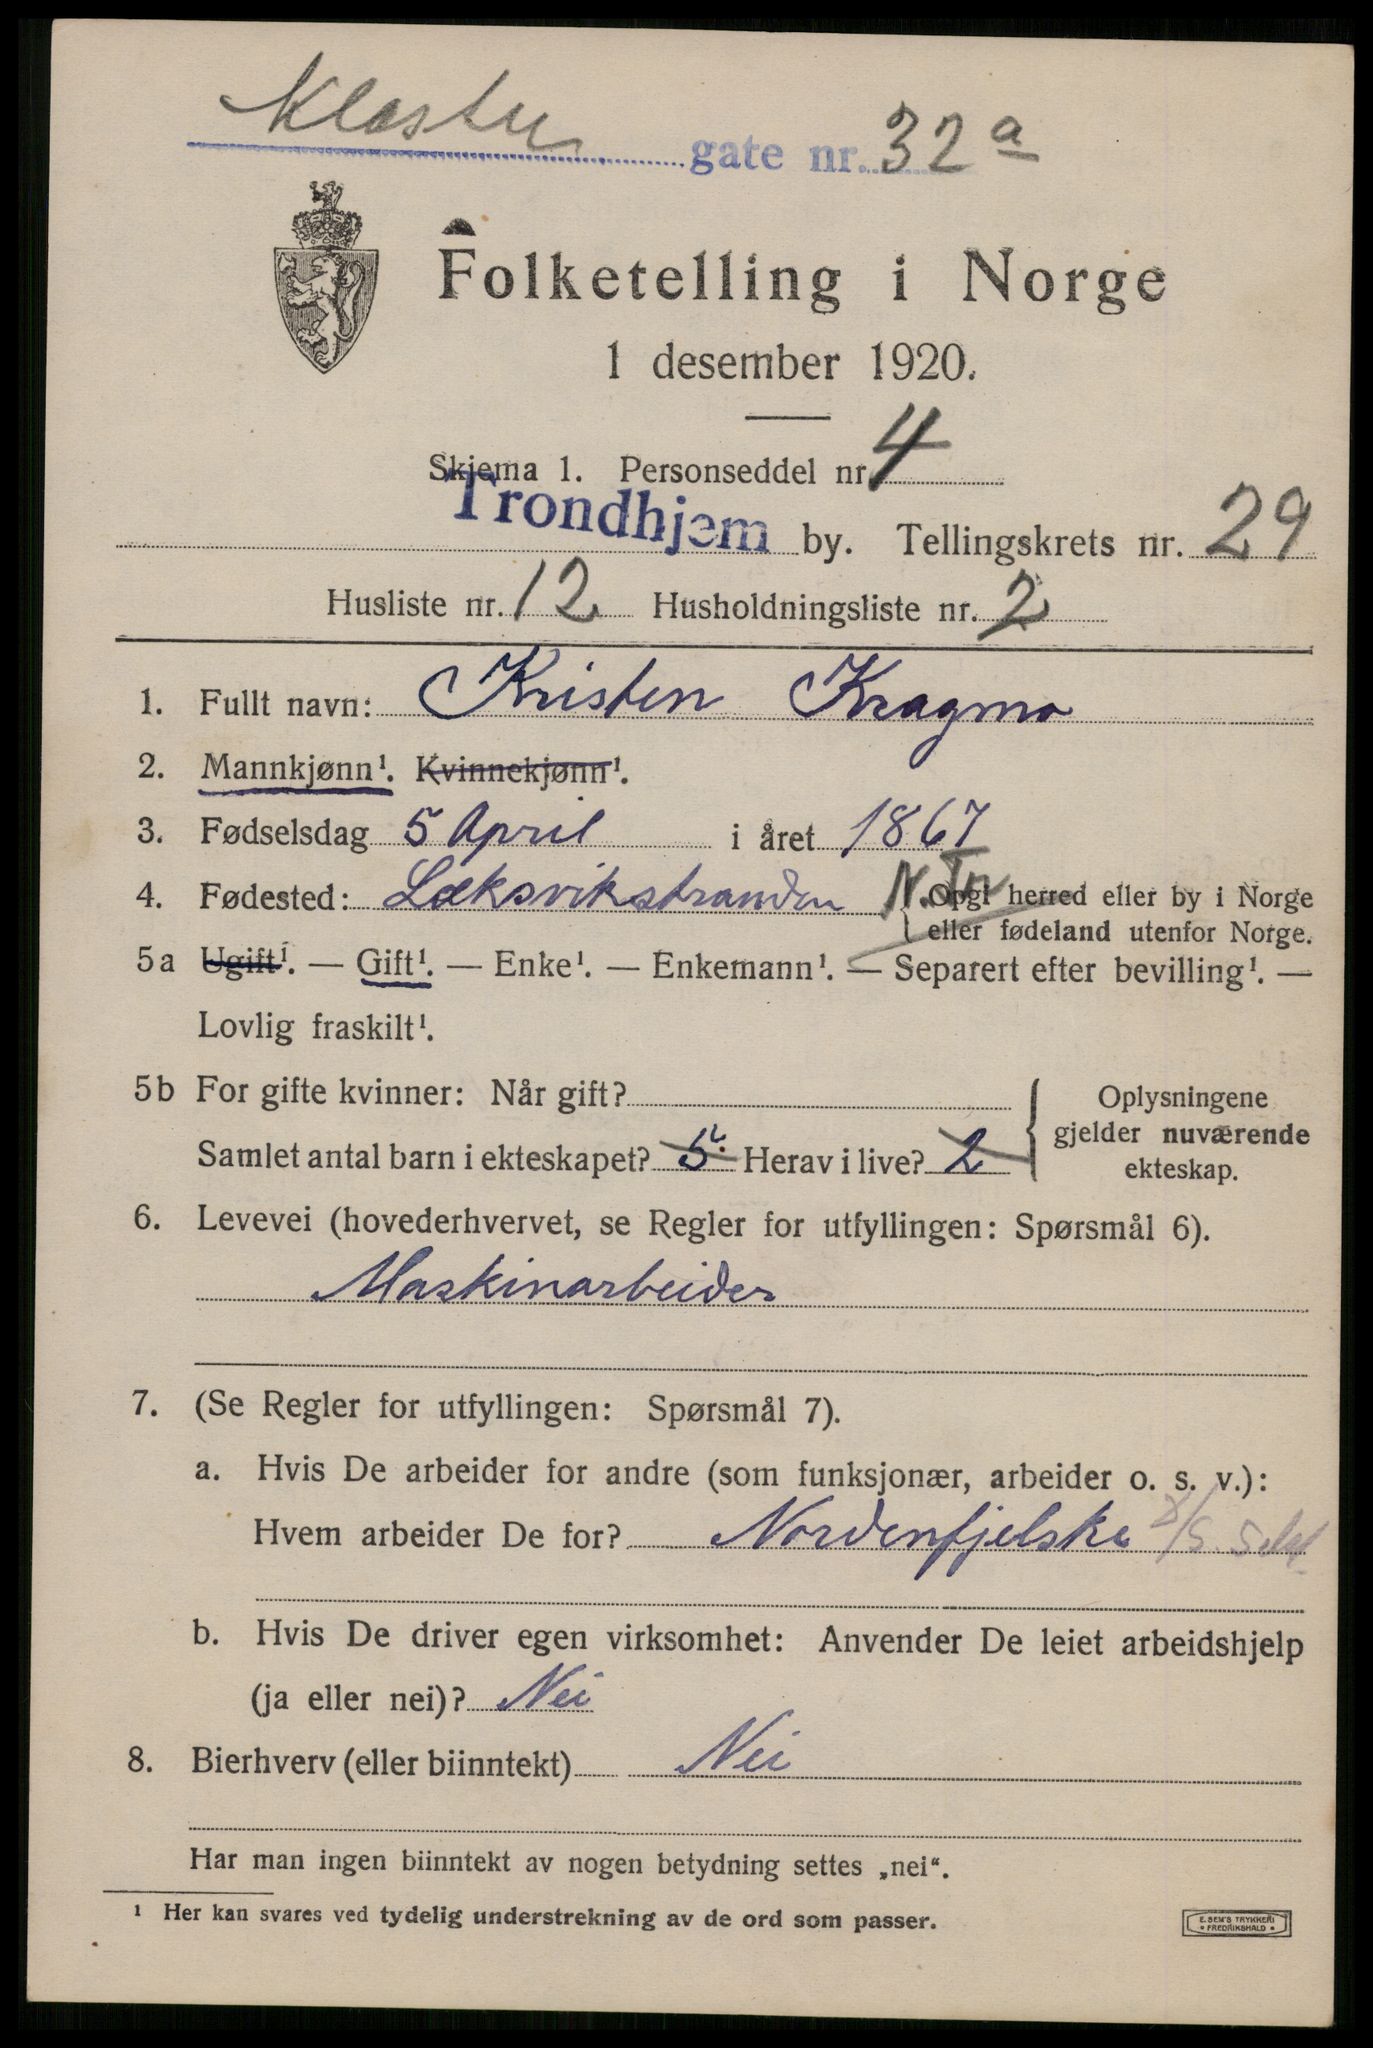 Kloster gate nr. 32 a
Folketelling i Norge
1 desember 1920.
Skjema 1. Personseddel nr. 4
Trondhjem by. Tellingskrets nr. 29
Husliste nr. 12 Husholdningsliste nr. 2
1. Fullt navn: Kristen Kragmo
2. Mannkjønn¹. Kvinnekjønn¹.
3. Fødselsdag 5 April i året 1867
4. Fødested: Læksvikstranden N.Tr. { Opgi herred eller by i Norge
eller fødeland utenfor Norge.
5a Ugift¹. — Gift¹. — Enke¹. — Enkemann¹. — Separert efter bevilling¹. —
Lovlig fraskilt¹.
5b For gifte kvinner: Når gift?
Samlet antal barn i ekteskapet? 5. Herav i live? 2
Oplysningene
gjelder nuværende
ekteskap.
6. Levevei (hovederhvervet, se Regler for utfyllingen: Spørsmål 6).
Maskinarbeider
7. (Se Regler for utfyllingen: Spørsmål 7).
a. Hvis De arbeider for andre (som funksjonær, arbeider o. s. v.):
Hvem arbeider De for? Nordenfjelske D/S. Selsk.
b. Hvis De driver egen virksomhet: Anvender De leiet arbeidshjelp
(ja eller nei)? Nei
8. Bierhverv (eller biinntekt) Nei
Har man ingen biinntekt av nogen betydning settes „nei“.
¹ Her kan svares ved tydelig understrekning av de ord som passer.
E. SEM'S TRYKKERI
FREDRIKSHALD